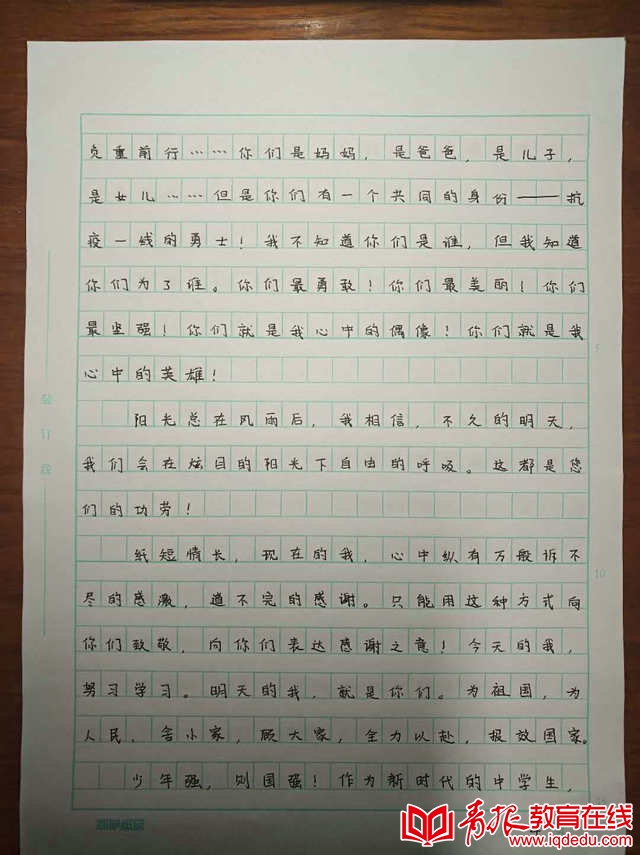 负重前行……你们是妈妈，是爸爸，是儿子，
是女儿……但是你们有一个共同的身份——抗
疫一线的勇士！我不知道你们是谁，但我知道
你们为了谁。你们最勇敢！你们最美丽！你们
最坚强！你们就是我心中的偶像！你们就是我
心中的英雄！
阳光总在风雨后，我相信，不久的明天，
我们会在炫目的阳光下自由的呼吸。这都是您
们的功劳！
纸短情长，现在的我，心中纵有万般诉不
尽的感激，道不完的感谢。只能用这种方式向
你们致敬，向你们表达感谢之意！今天的我，
努习学习。明天的我，就是你们。为祖国，为
人民，舍小家，顾大家，全力以赴，报效国家。
少年强，则国强！作为新时代的中学生，
青报教育在线
www.iqdedu.com